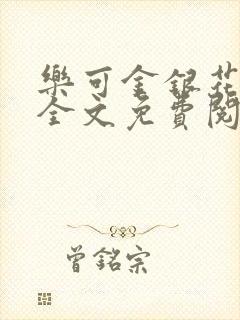 樂可金銀花
全文免費閱
曾銘宗